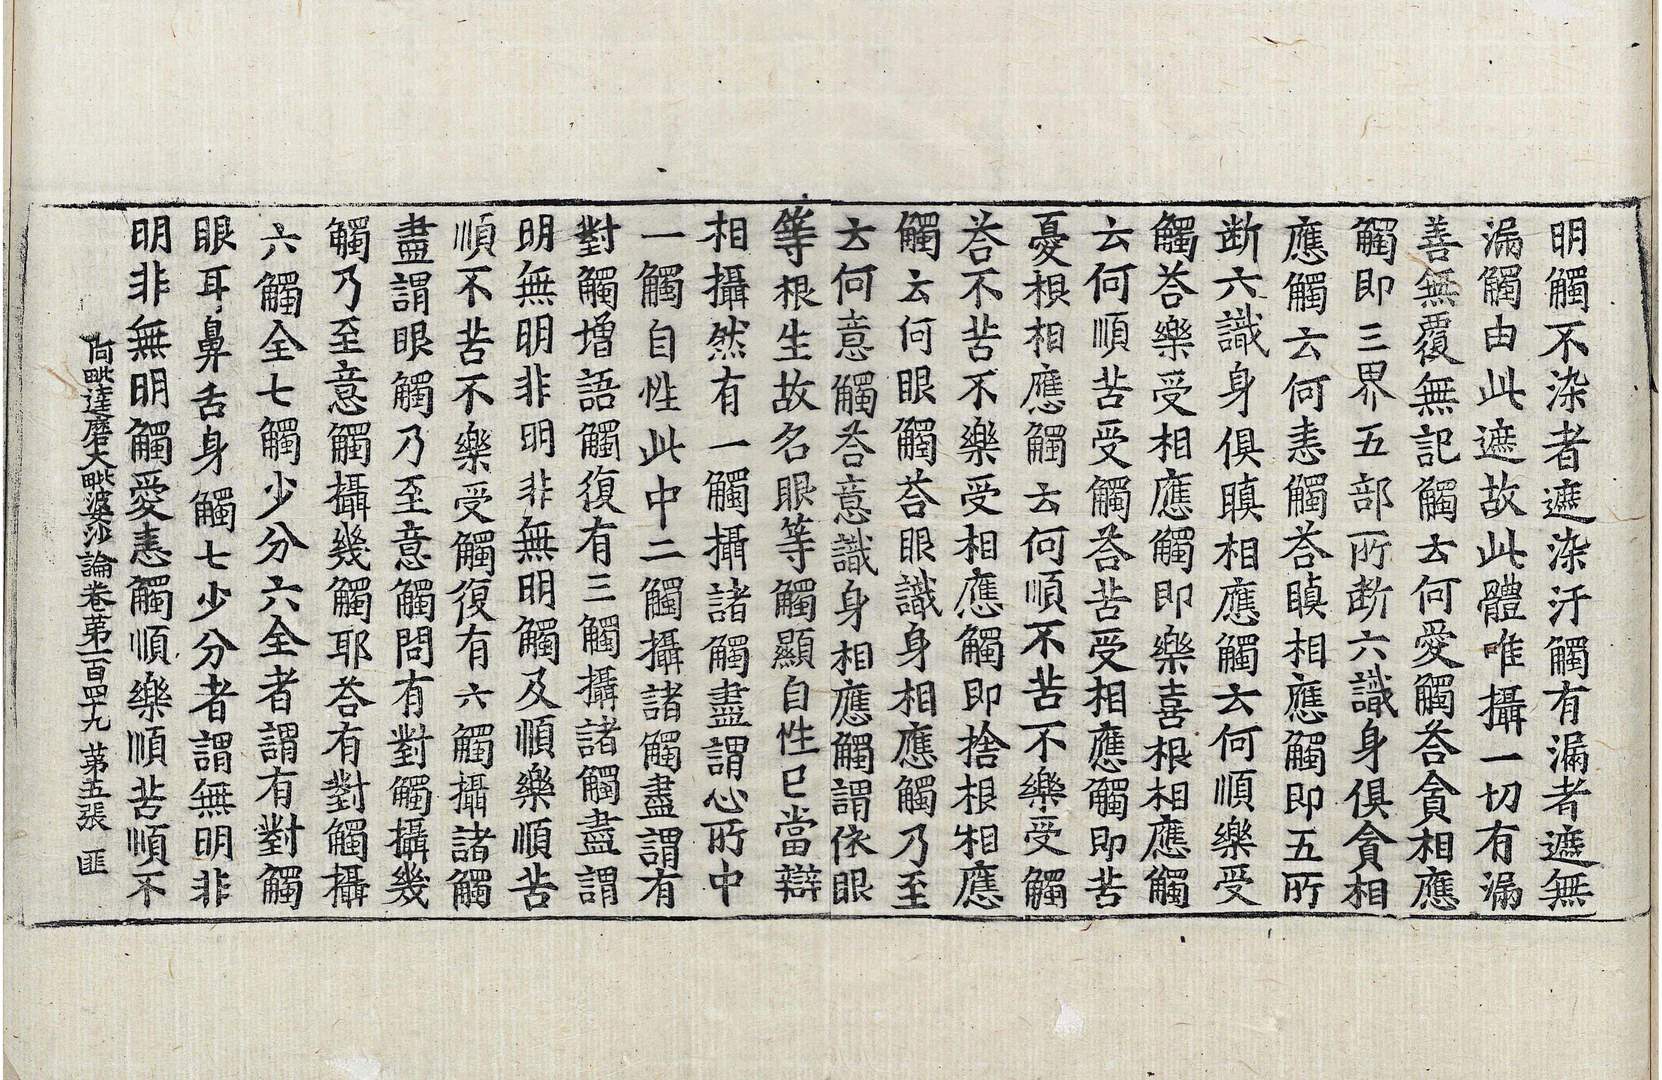 明觸不染者遮染汙觸有漏者遮無
漏觸由此遮故此體唯攝一切有漏
善無覆無記觸云何愛觸荅貪相應
觸即三界五部所斷六識身俱貪相
應觸云何恚觸荅瞋相應觸即五所
斷六識身俱瞋相應觸云何順樂受
觸荅樂受相應觸即樂喜根相應觸
云何順苦受觸荅苦受相應觸即苦
憂根相應觸云何順不苦不樂受觸
荅不苦不樂受相應觸即捨根相應
觸云何眼觸荅眼識身相應觸乃至
云何意觸荅意識身相應觸謂依眼
等根生故名眼等觸顯自性已當辯
相攝然有一觸攝諸觸盡謂心所中
一觸自性此中二觸攝諸觸盡謂有
對觸增語觸復有三觸攝諸觸盡謂
明無明非明非無明觸及順樂順苦
順不苦不樂受觸復有六觸攝諸觸
盡謂眼觸乃至意觸問有對觸攝幾
觸乃至意觸攝幾觸耶荅有對觸攝
六觸全七觸少分六全者謂有對觸
眼耳鼻舌身觸七少分者謂無明非
明非無明觸愛恚觸順樂順苦順不
阿毗達磨大毗婆沙論卷苐一百四十九 苐五張 匪